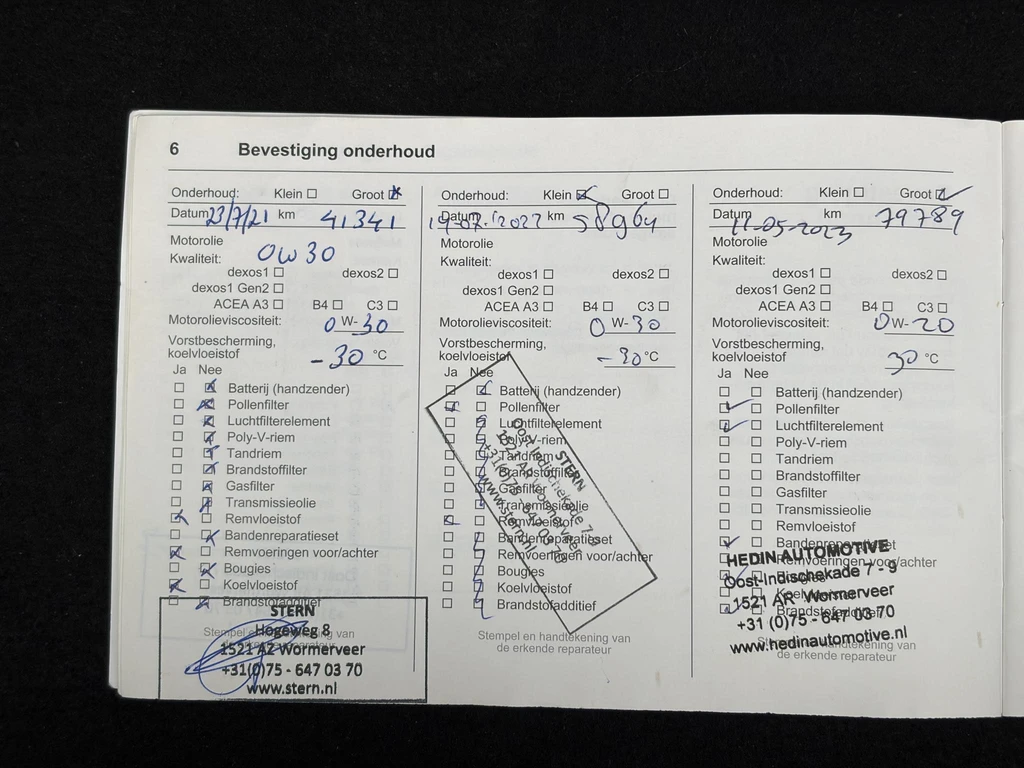 6 Bevestiging onderhoud
Onderhoud: Klein Groot
Datum 23/7/21 km 41341
Motorolie
Kwaliteit: OW 30
dexos1 dexos2
dexos1 Gen2
ACEA A3 B4 C3
Motorolieviscositeit: 0 W-30
Vorstbescherming,
koelvloeistof -30 °C
Ja Nee
Batterij (handzender)
Pollenfilter
Luchtfilterelement
Poly-V-riem
Tandriem
Brandstoffilter
Gasfilter
Transmissieolie
Remvloeistof
Bandenreparatieset
Remvoeringen voor/achter
Bougies
Koelvloeistof
Brandstofadditief
Stempel en handtekening van
de erkende reparateur
STERN
Hogeweg 8
1521 AZ Wormerveer
+31(0)75 - 647 03 70
www.stern.nl
Onderhoud: Klein Groot
Datum 19-07-2022 km 58964
Motorolie
Kwaliteit:
dexos1 dexos2
dexos1 Gen2
ACEA A3 B4 C3
Motorolieviscositeit: 0 W-30
Vorstbescherming,
koelvloeistof -30 °C
Ja Nee
Batterij (handzender)
Pollenfilter
Luchtfilterelement
Poly-V-riem
Tandriem
Brandstoffilter
Gasfilter
Transmissieolie
Remvloeistof
Bandenreparatieset
Remvoeringen voor/achter
Bougies
Koelvloeistof
Brandstofadditief
STERN
Oost Indischekade 7-9
1521 AR Wormerveer
+31(0)75 - 647 03 70
www.stern.nl
Stempel en handtekening van
de erkende reparateur
Onderhoud: Klein Groot
Datum 11-05-2023 km 79789
Motorolie
Kwaliteit:
dexos1 dexos2
dexos1 Gen2
ACEA A3 B4 C3
Motorolieviscositeit: 0W-20
Vorstbescherming,
koelvloeistof 30 °C
Ja Nee
Batterij (handzender)
Pollenfilter
Luchtfilterelement
Poly-V-riem
Tandriem
Brandstoffilter
Gasfilter
Transmissieolie
Remvloeistof
Bandenreparatieset
Remvoeringen voor/achter
Bougies
Koelvloeistof
Brandstofadditief
HEDIN AUTOMOTIVE
Oost-Indischekade 7 - 9
1521 AR Wormerveer
+31 (0)75 - 647 03 70
www.hedinautomotive.nl
Stempel en handtekening van
de erkende reparateur